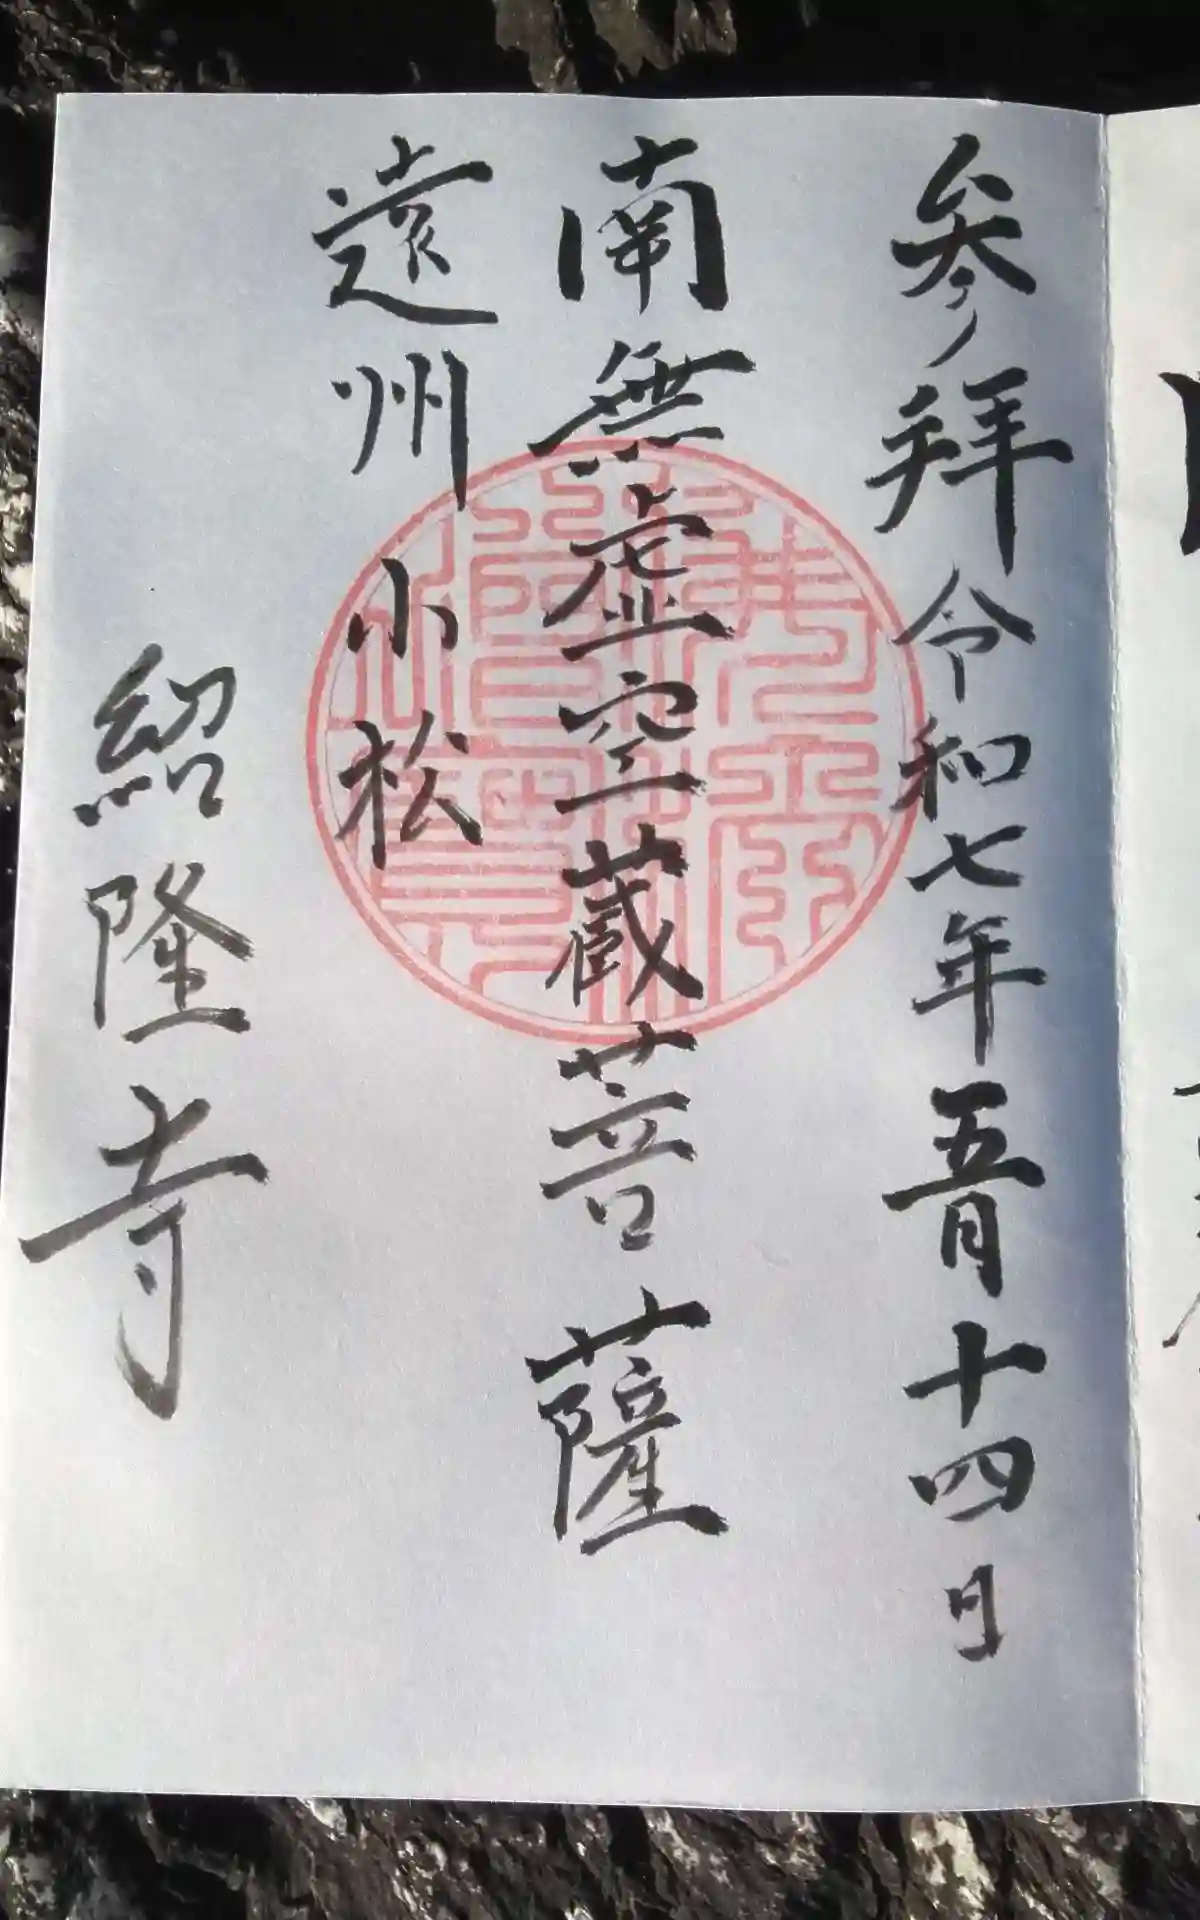 参拝 令和七年五月十四日
南無虚空蔵菩薩
遠州 小松
紹隆寺